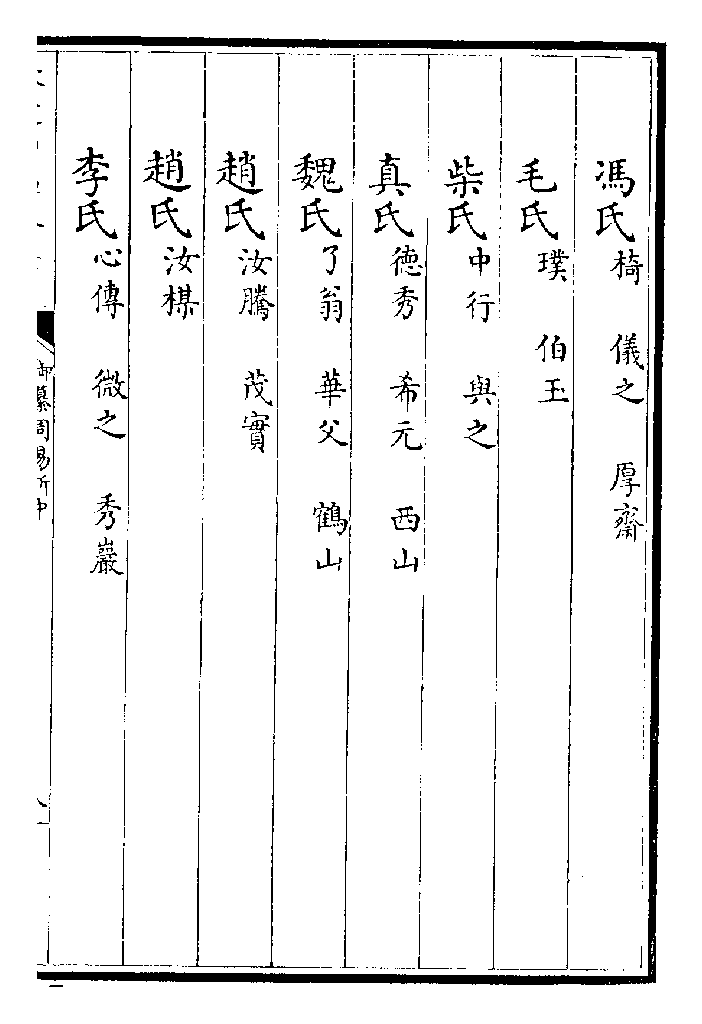 馮氏椅 儀之 厚齋
毛氏璞 伯玉
柴氏中行 與之
真氏德秀 希元 西山
魏氏了翁 華父 鶴山
趙氏汝騰 茂實
趙氏汝楳
李氏心傳 微之 秀巖
御纂周易折中